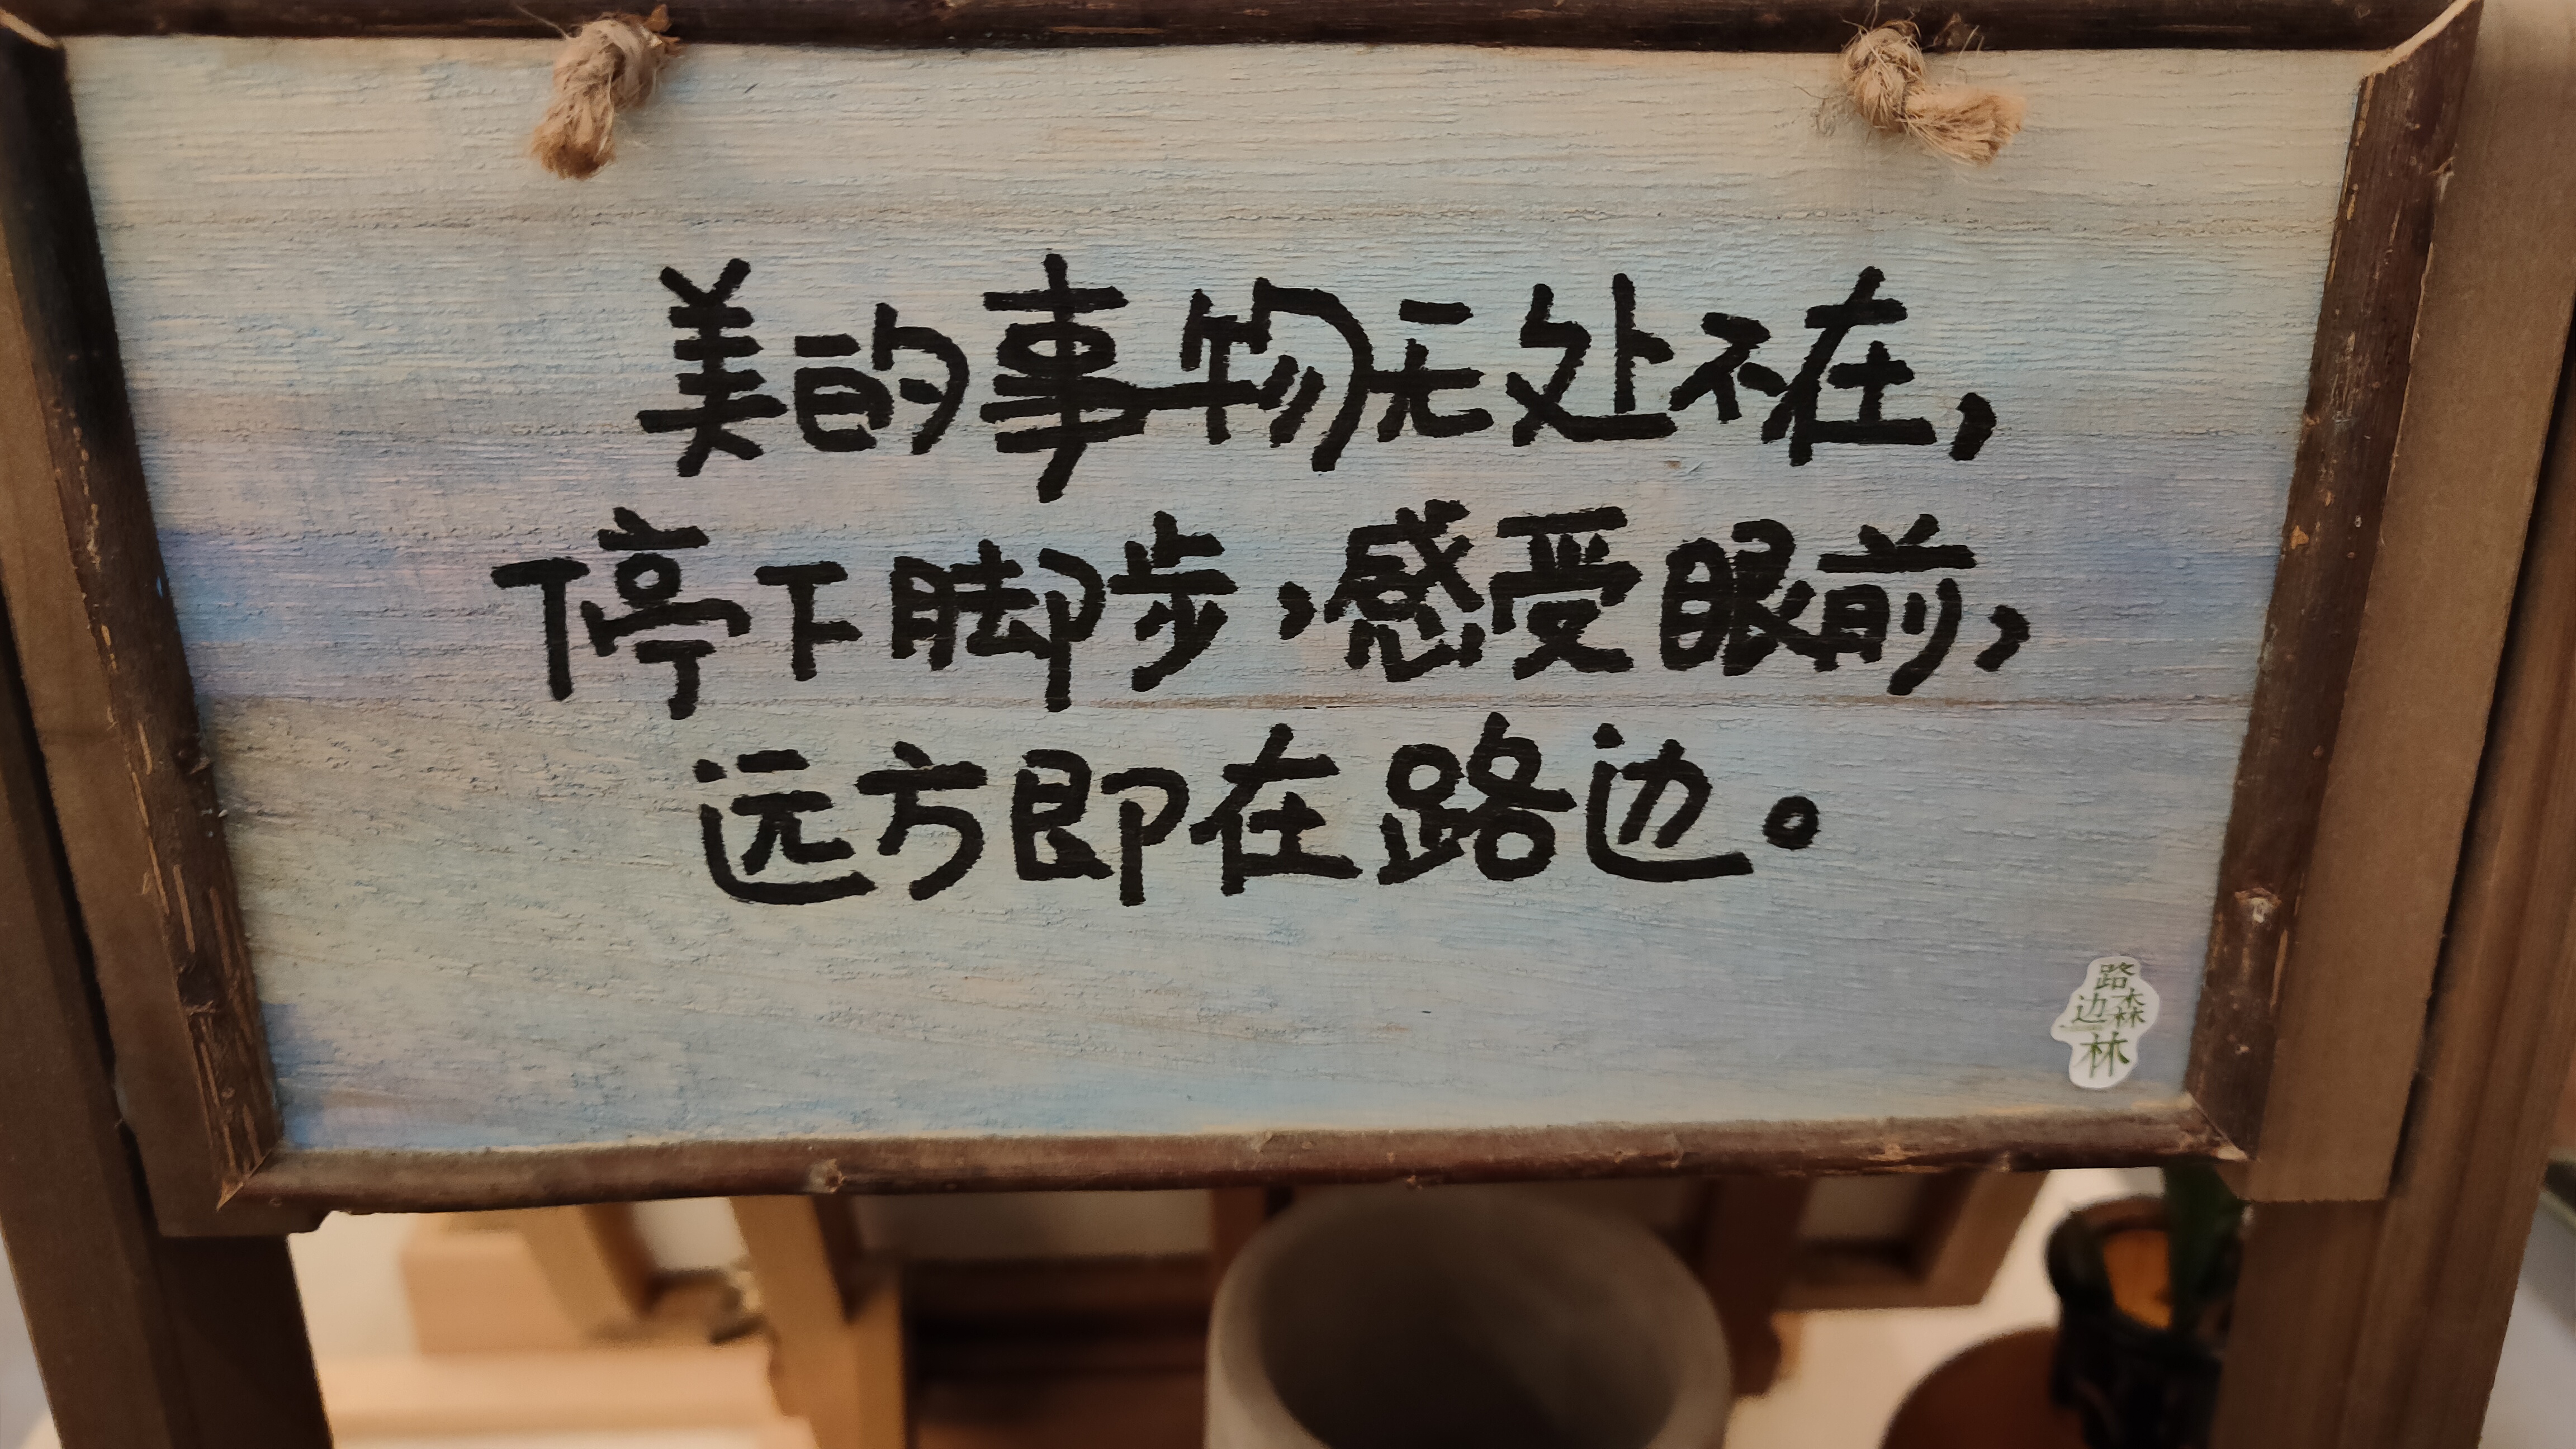 美的事物无处不在，
停下脚步，感受眼前，
远方即在路边。
路边森林